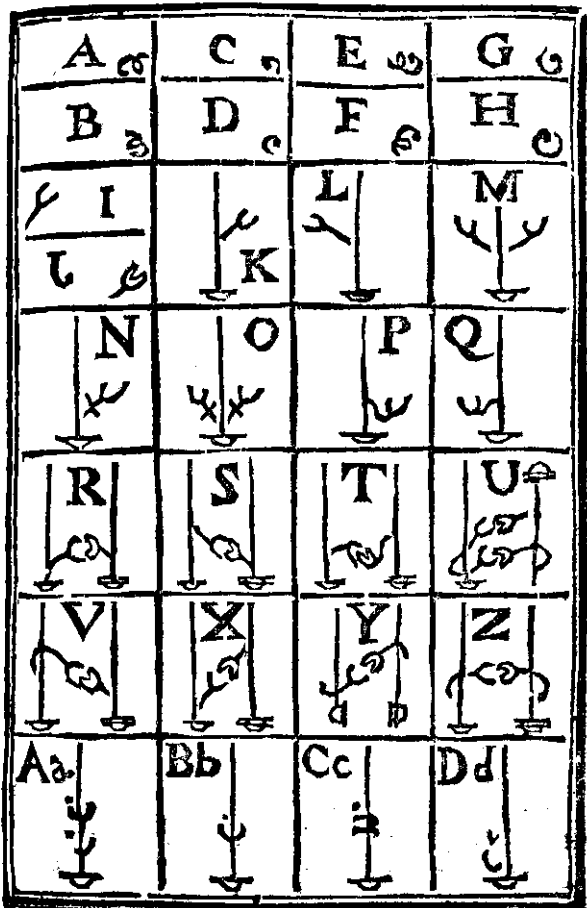 A C E G
B D F H
I K L M
J
N O P Q
R S T U
V X Y Z
Aa Bb Cc Dd